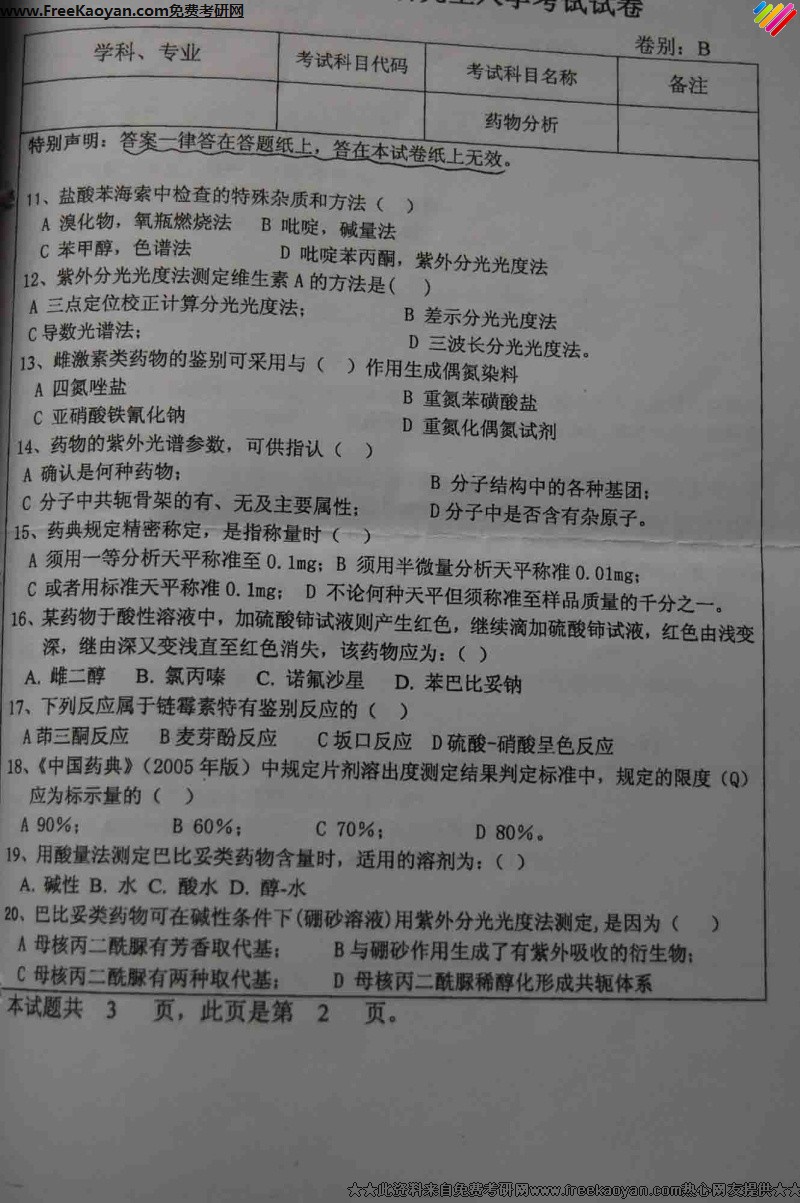 www.FreeKaoyan.com免费考研网
FreeKaoyan.com
入学考试试卷
卷别：B
学科、专业 考试科目代码 考试科目名称 备注
药物分析
特别声明：答案一律答在答题纸上，答在本试卷纸上无效。
11、盐酸苯海索中检查的特殊杂质和方法（ ）
A 溴化物，氧瓶燃烧法 B 吡啶，碱量法
C 苯甲醇，色谱法 D 吡啶苯丙酮，紫外分光光度法
12、紫外分光光度法测定维生素 A 的方法是( )
A 三点定位校正计算分光光度法； B 差示分光光度法
C 导数光谱法； D 三波长分光光度法。
13、雌激素类药物的鉴别可采用与（ ）作用生成偶氮染料
A 四氮唑盐 B 重氮苯磺酸盐
C 亚硝酸铁氰化钠 D 重氮化偶氮试剂
14、药物的紫外光谱参数，可供指认（ ）
A 确认是何种药物； B 分子结构中的各种基团；
C 分子中共轭骨架的有、无及主要属性； D 分子中是否含有杂原子。
15、药典规定精密称定，是指称量时（ ）
A 须用一等分析天平称准至 0.1mg；B 须用半微量分析天平称准 0.01mg；
C 或者用标准天平称准 0.1mg； D 不论何种天平但须称准至样品质量的千分之一。
16、某药物于酸性溶液中，加硫酸铈试液则产生红色，继续滴加硫酸铈试液，红色由浅变
深，继由深又变浅直至红色消失，该药物应为：（ ）
A. 雌二醇 B. 氯丙嗪 C. 诺氟沙星 D. 苯巴比妥钠
17、下列反应属于链霉素特有鉴别反应的（ ）
A 茚三酮反应 B 麦芽酚反应 C 坂口反应 D 硫酸-硝酸呈色反应
18、《中国药典》（2005 年版）中规定片剂溶出度测定结果判定标准中，规定的限度（Q）
应为标示量的（ ）
A 90%； B 60%； C 70%； D 80%。
19、用酸量法测定巴比妥类药物含量时，适用的溶剂为：（ ）
A. 碱性 B. 水 C. 酸水 D. 醇-水
20、巴比妥类药物可在碱性条件下(硼砂溶液)用紫外分光光度法测定,是因为（ ）
A 母核丙二酰脲有芳香取代基； B 与硼砂作用生成了有紫外吸收的衍生物；
C 母核丙二酰脲有两种取代基； D 母核丙二酰脲稀醇化形成共轭体系
本试题共 3 页，此页是第 2 页。
☆☆此资料来自免费考研网www.freekaoyan.com热心网友提供☆☆